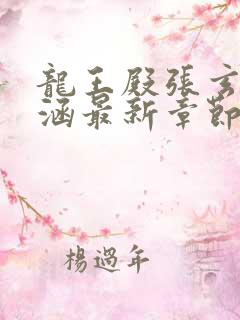 龍王殿張玄
涵最新章節
楊過年